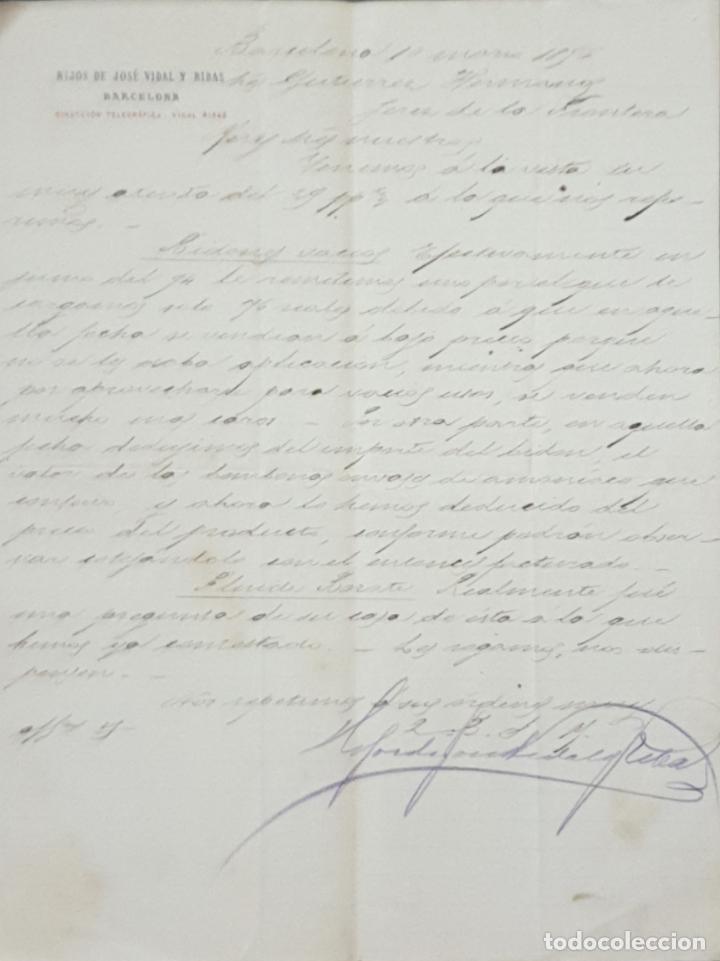 HIJOS DE JOSÉ VIDAL Y RIBAS
BARCELONA
DIRECCIÓN TELEGRÁFICA: VIDAL RIBAS
Barcelona 10 marzo
Gutierrez Hermanos
Jerez de la Frontera
muy nuestros
Tenemos á la vista su
muy atenta del 29 á la que nos refe-
rimos. —
Bidones vacios Efectivamente en
junio del 94 le remitimos uno por el que le
cargamos solo 76 reales debido á que en aque-
lla fecha se vendian á bajo precio porque
no se les daba aplicación, mientras que ahora
por aprovecharse para varios usos, se venden
mucho mas caros — Por otra parte, en aquella
fecha dedujimos del importe del bidon, el
valor de las bombonas envases de amoniaco que
y ahora lo hemos deducido del
precio del producto, conforme podrán obser-
var cotejándolo con el entonces facturado. —
Realmente fué
una pregunta de su casa de ésta á la que
hemos ya contestado. — Les rogamos, nos dis-
pensen. —
Nos repetimos á sus órdenes muy
affmos
Hijos de José Vidal y Ribas
todocoleccion